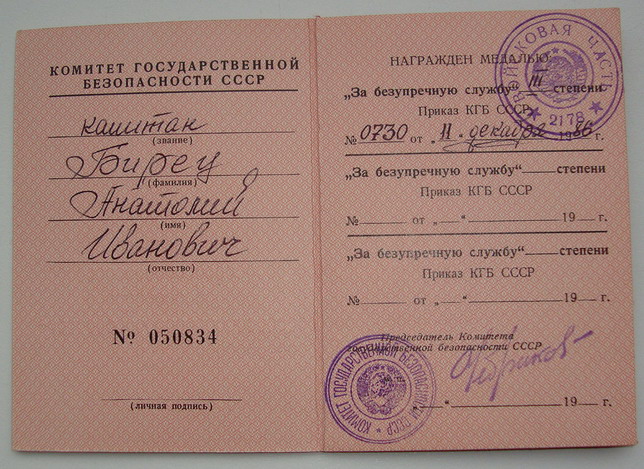 КОМИТЕТ ГОСУДАРСТВЕННОЙ
БЕЗОПАСНОСТИ СССР
капитан
(звание)
Бирец
(фамилия)
Анатолий
(имя)
Иванович
(отчество)
№ 050834
(личная подпись)
НАГРАЖДЕН МЕДАЛЬЮ:
„За безупречную службу“ III степени
Приказ КГБ СССР
№ 0730 от „11“ декабря 1986 г.
„За безупречную службу“ степени
Приказ КГБ СССР
№ от „ “ 19 г.
„За безупречную службу“ степени
Приказ КГБ СССР
№ от „ “ 19 г.
Председатель Комитета
государственной безопасности СССР
„ “ 19 г.
ВОЙСКОВАЯ ЧАСТЬ
★ 2178 ★
КОМИТЕТ ГОСУДАРСТВЕННОЙ БЕЗОПАСНОСТИ СССР ★